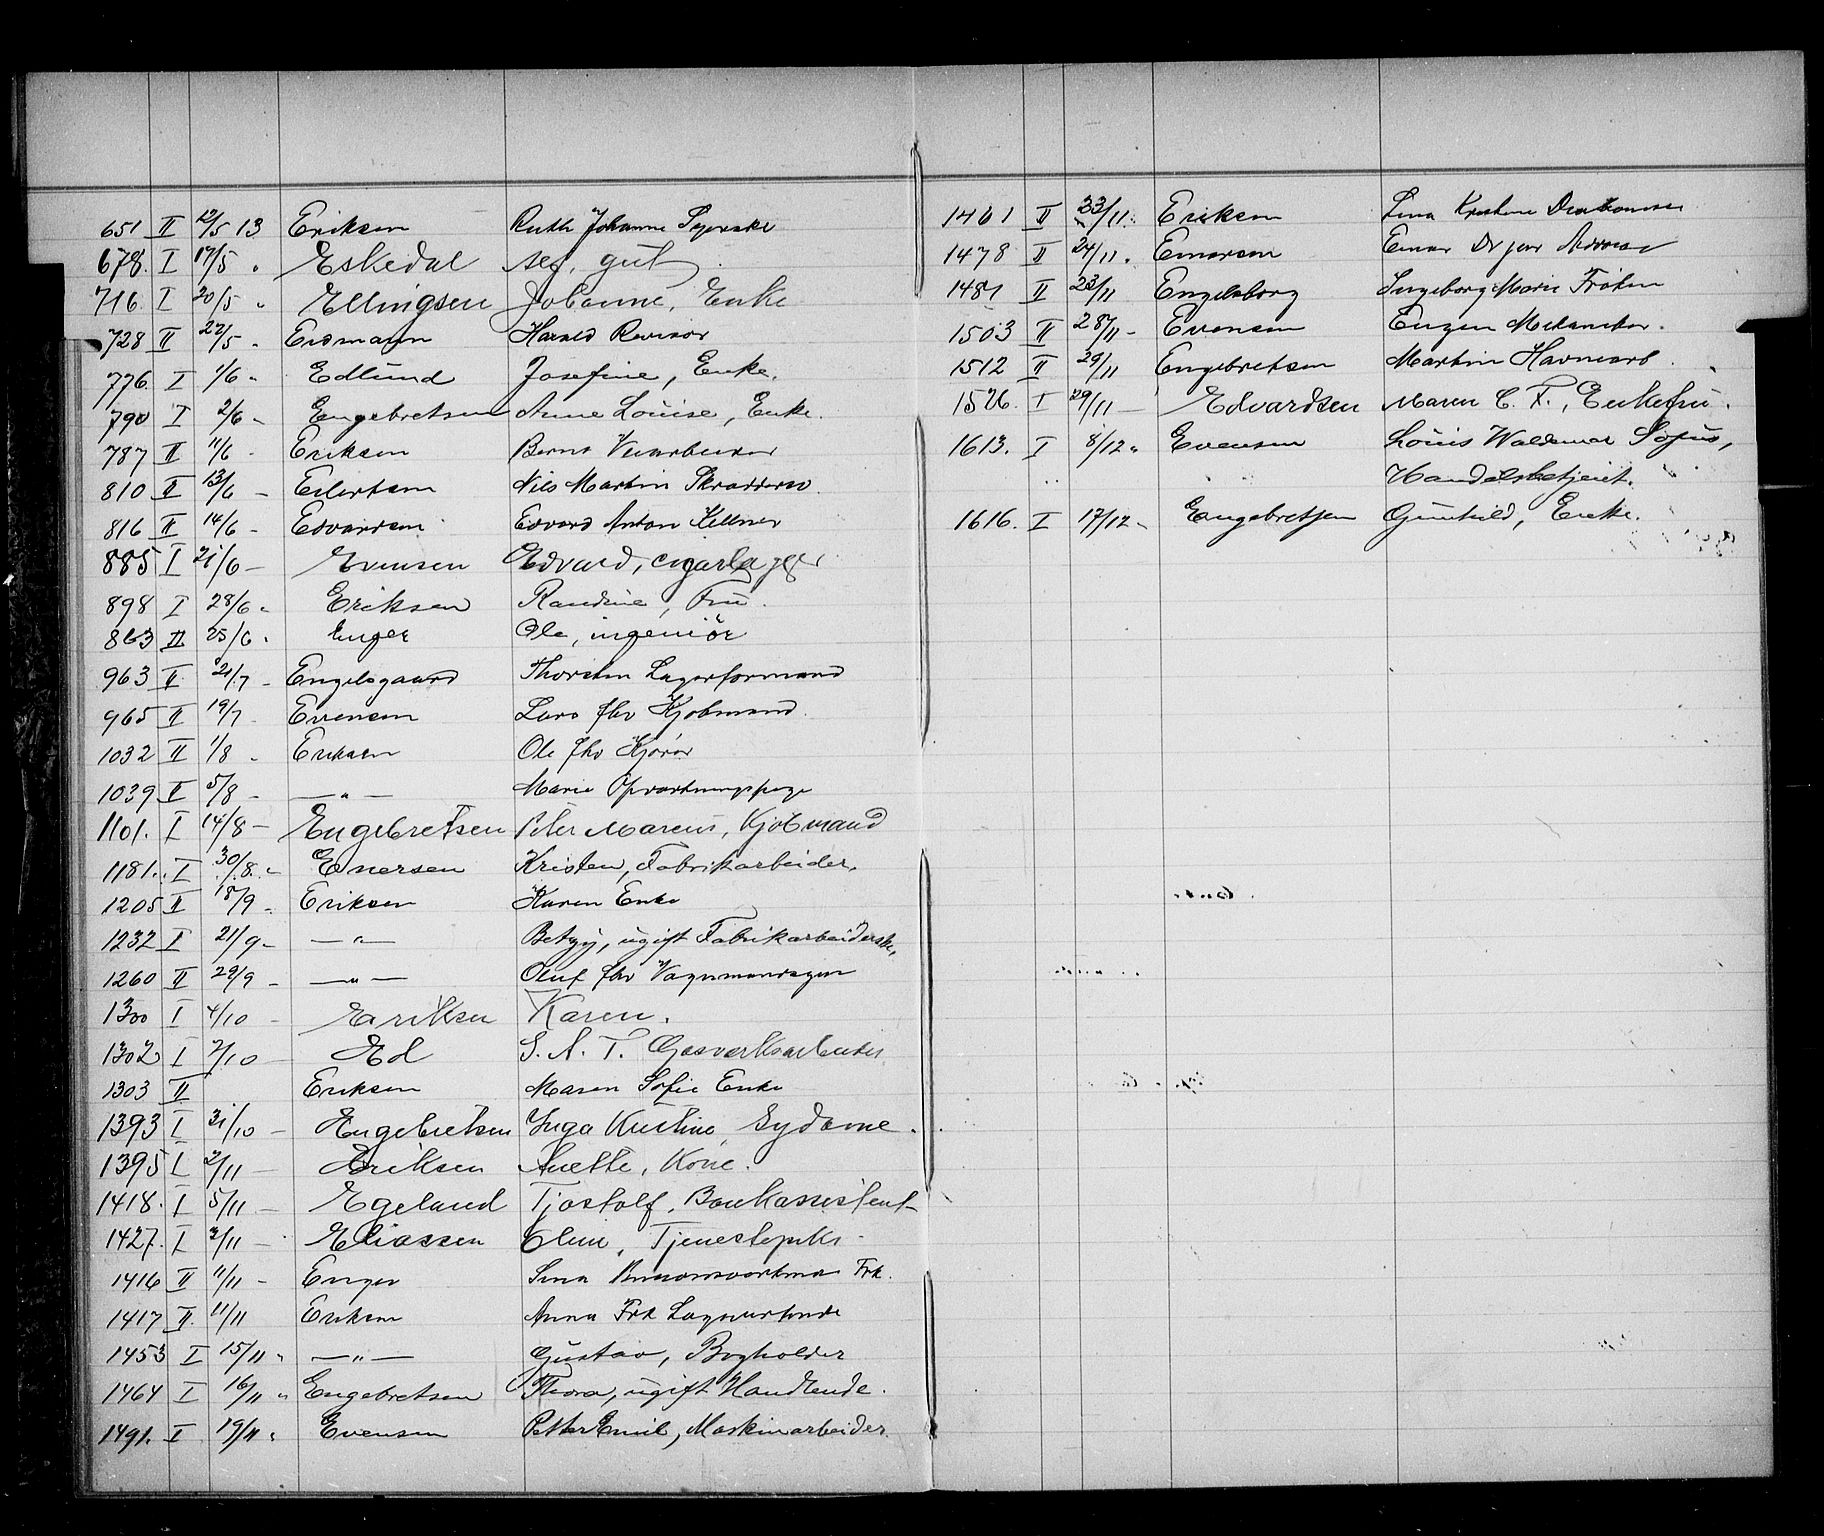 651 II 12/5 13 Eriksen Ruth Johanne Syerske
678. I 17/5 " Eskedal sef. gut
716. I 20/5 " Ellingsen Johanne, Enke
728 II 27/5 " Erdmann Harald Revisor
776. I 1/6 " Edlund Josefine, Enke.
790 I 2/6 " Engebretsen Anne Louise, Enke.
787 II 11/6 " Eriksen Bernt
810 II 13/6 - Eilertsen Nils Martin Skrædder
816 II 14/6 - Edvardsen Edvard Anton Kellner
885 I 21/6 - Evensen Edvard,
898 I 28/6 " Eriksen Randine, Fru.
863 II 25/6 " Enger Ole, ingeniør
963 II 21/7 - Engelsgaard Thorsten Lagerformand
965 II 19/7 - Evensen Lars fhv Kjøbmand
1032 II 1/8 " Eriksen Ole fhv Kjører
1039 II 5/8 - —"— Marie
1101. I 14/8 - Engebretsen Peter Marcus, Kjøbmand
1181. I 30/8. " Enersen Kristen, Fabrikarbeider.
1205 II 18/9 - Eriksen Karen Enke
1232 I 21/9 - —"— Betzy, ugift Fabrikarbeiderske.
1260 II 29/9 - —"— Oluf fhv
1300 I 4/10 - Eriksen Karen.
1302 I 7/10 - Ed S. A. T. Gasverksarbeider
1303 II Eriksen Maren Sofie Enke
1393 I 31/10 - Engebretsen Inga Kristine, Sydame.
1395 I 2/11 - Eriksen Anette, Kone.
1418. I 5/11 - Egeland Tjostolf, Bankassistent
1427. I 3/11 - Eliassen Oline, Tjenestepike
1416 II 11/11 - Enger Lina Frk.
1417 II 11/11 Eriksen Anna Frk
1453 I 15/11 " —"— Gustav, Bogholder
1464 I 16/11 " Engebretsen Thora, ugift Handlende.
1491. I 19/11 " Evensen Petter Emil, Maskinarbeider.
1461 II 23/11. Eriksen Lina Kristine
1478 II 24/11. Einarsen Einar
1481 II 23/11 Engelsborg Ingeborg Marie Frøken
1503 II 28/11 - Evensen Eugen Mekaniker.
1512 II 29/11 Engebretsen Martin Havnearb.
1526. I 29/11 - Edvardsen Maren C. F., Enkefru.
1613. I 8/12 " Evensen Louis Waldemar Sofus,
Handelsbetjent.
1616. I 17/12 " Engebretsen Gunhild, Enke.